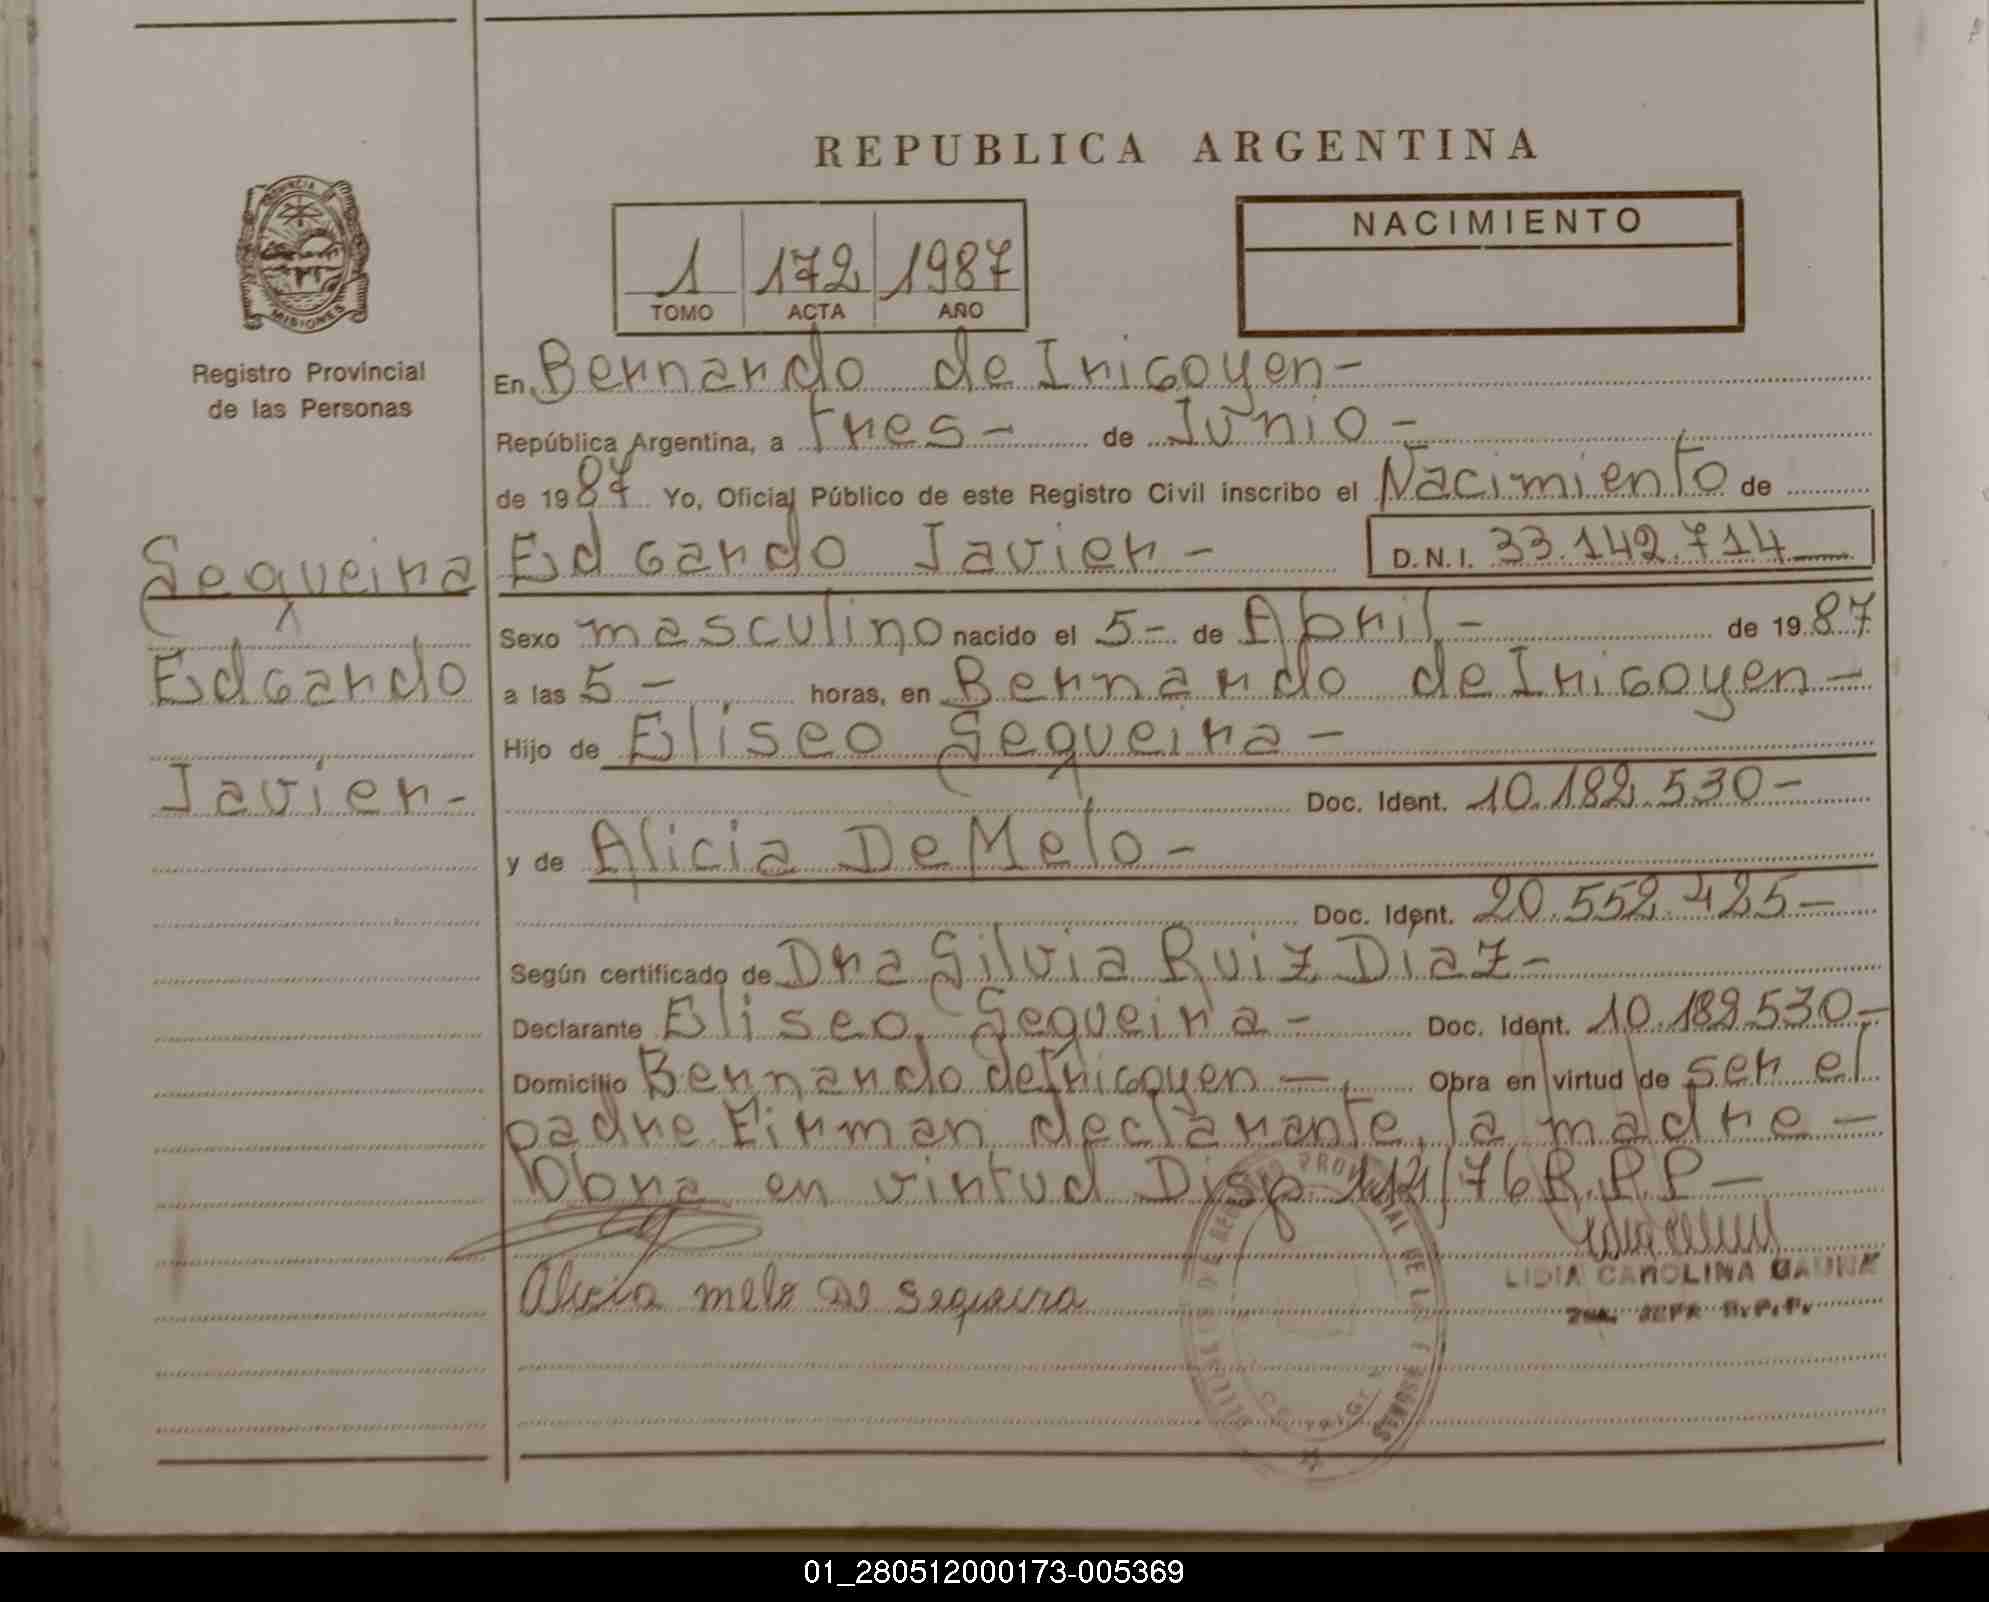 REPUBLICA ARGENTINA
PROVINCIA DE
MISIONES
Registro Provincial
de las Personas
1 172 1987
TOMO ACTA AÑO
NACIMIENTO
En Bernardo de Irigoyen-
República Argentina, a tres- de Junio-
de 1987 Yo, Oficial Público de este Registro Civil inscribo el Nacimiento de
Sequeira
Edgardo
Javier-
Edgardo Javier- D.N.I. 33.142.714
Sexo masculino nacido el 5- de Abril- de 1987
a las 5- horas, en Bernardo de Irigoyen-
Hijo de Eliseo Sequeira-
Doc. Ident. 10.182.530-
y de Alicia De Melo-
Doc. Ident. 20.552.425-
Según certificado de Dra Silvia Ruiz Diaz-
Declarante Eliseo Sequeira- Doc. Ident. 10.182.530-
Domicilio Bernardo de Irigoyen- Obra en virtud de ser el
padre Firman declarante, la madre-
Obra en virtud Disp /76 R.P.P-
Alicia melo De Sequeira
LIDIA CAROLINA GAUNA
JEFA R.P.P.
01_280512000173-005369